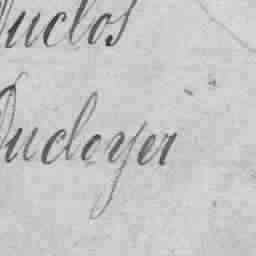 Duclos
Ducloyer